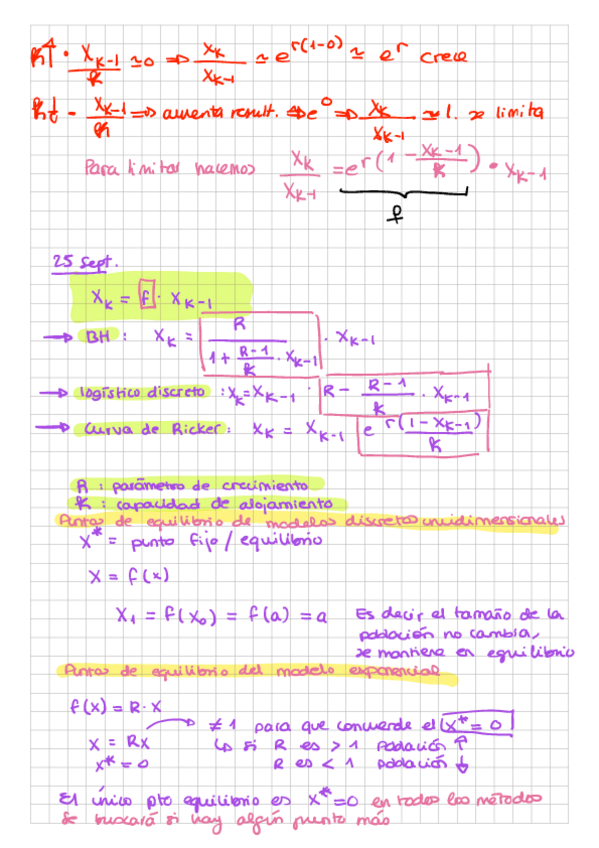 K↑ · X_{K-1}/K ≃ 0 ⇒ X_K/X_{K-1} ≃ e^{r(1-0)} ≃ e^r crece
K↓ - X_{K-1}/K ⇒ aumenta result. ⇒ e^0 ⇒ X_K/X_{K-1} ≃ 1. se limita
Para limitar hacemos X_K/X_{K-1} = e^{r(1 - X_{K-1}/K)} · X_{K-1}
f
25 Sept.
X_K = f · X_{K-1}
→ BH : X_K = R/(1 + (R-1)/K · X_{K-1}) · X_{K-1}
→ logístico discreto : X_K = X_{K-1} · R - (R-1)/K · X_{K-1}
→ Curva de Ricker : X_K = X_{K-1} e^{r(1-X_{K-1})/K}
R : parámetro de crecimiento
K : capacidad de alojamiento
Puntos de equilibrio de modelos discretos unidimensionales
X* = punto fijo / equilibrio
X = f(x)
X_1 = f(X_0) = f(a) = a Es decir el tamaño de la
población no cambia,
se mantiene en equilibrio
Puntos de equilibrio del modelo exponencial
f(x) = R · X
≠ 1 para que concuerde el X* = 0
X = RX ↳ si R es > 1 población ↑
X* = 0 R es < 1 población ↓
El único pto equilibrio es X* = 0 en todos los métodos
se buscará si hay algún punto más